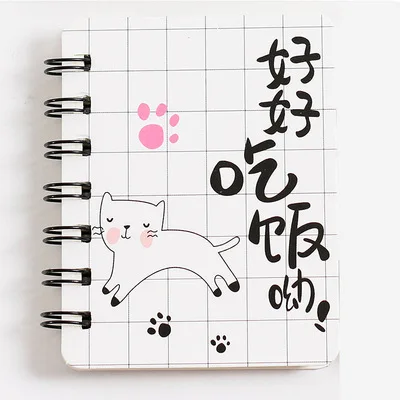 好好吃饭呦!